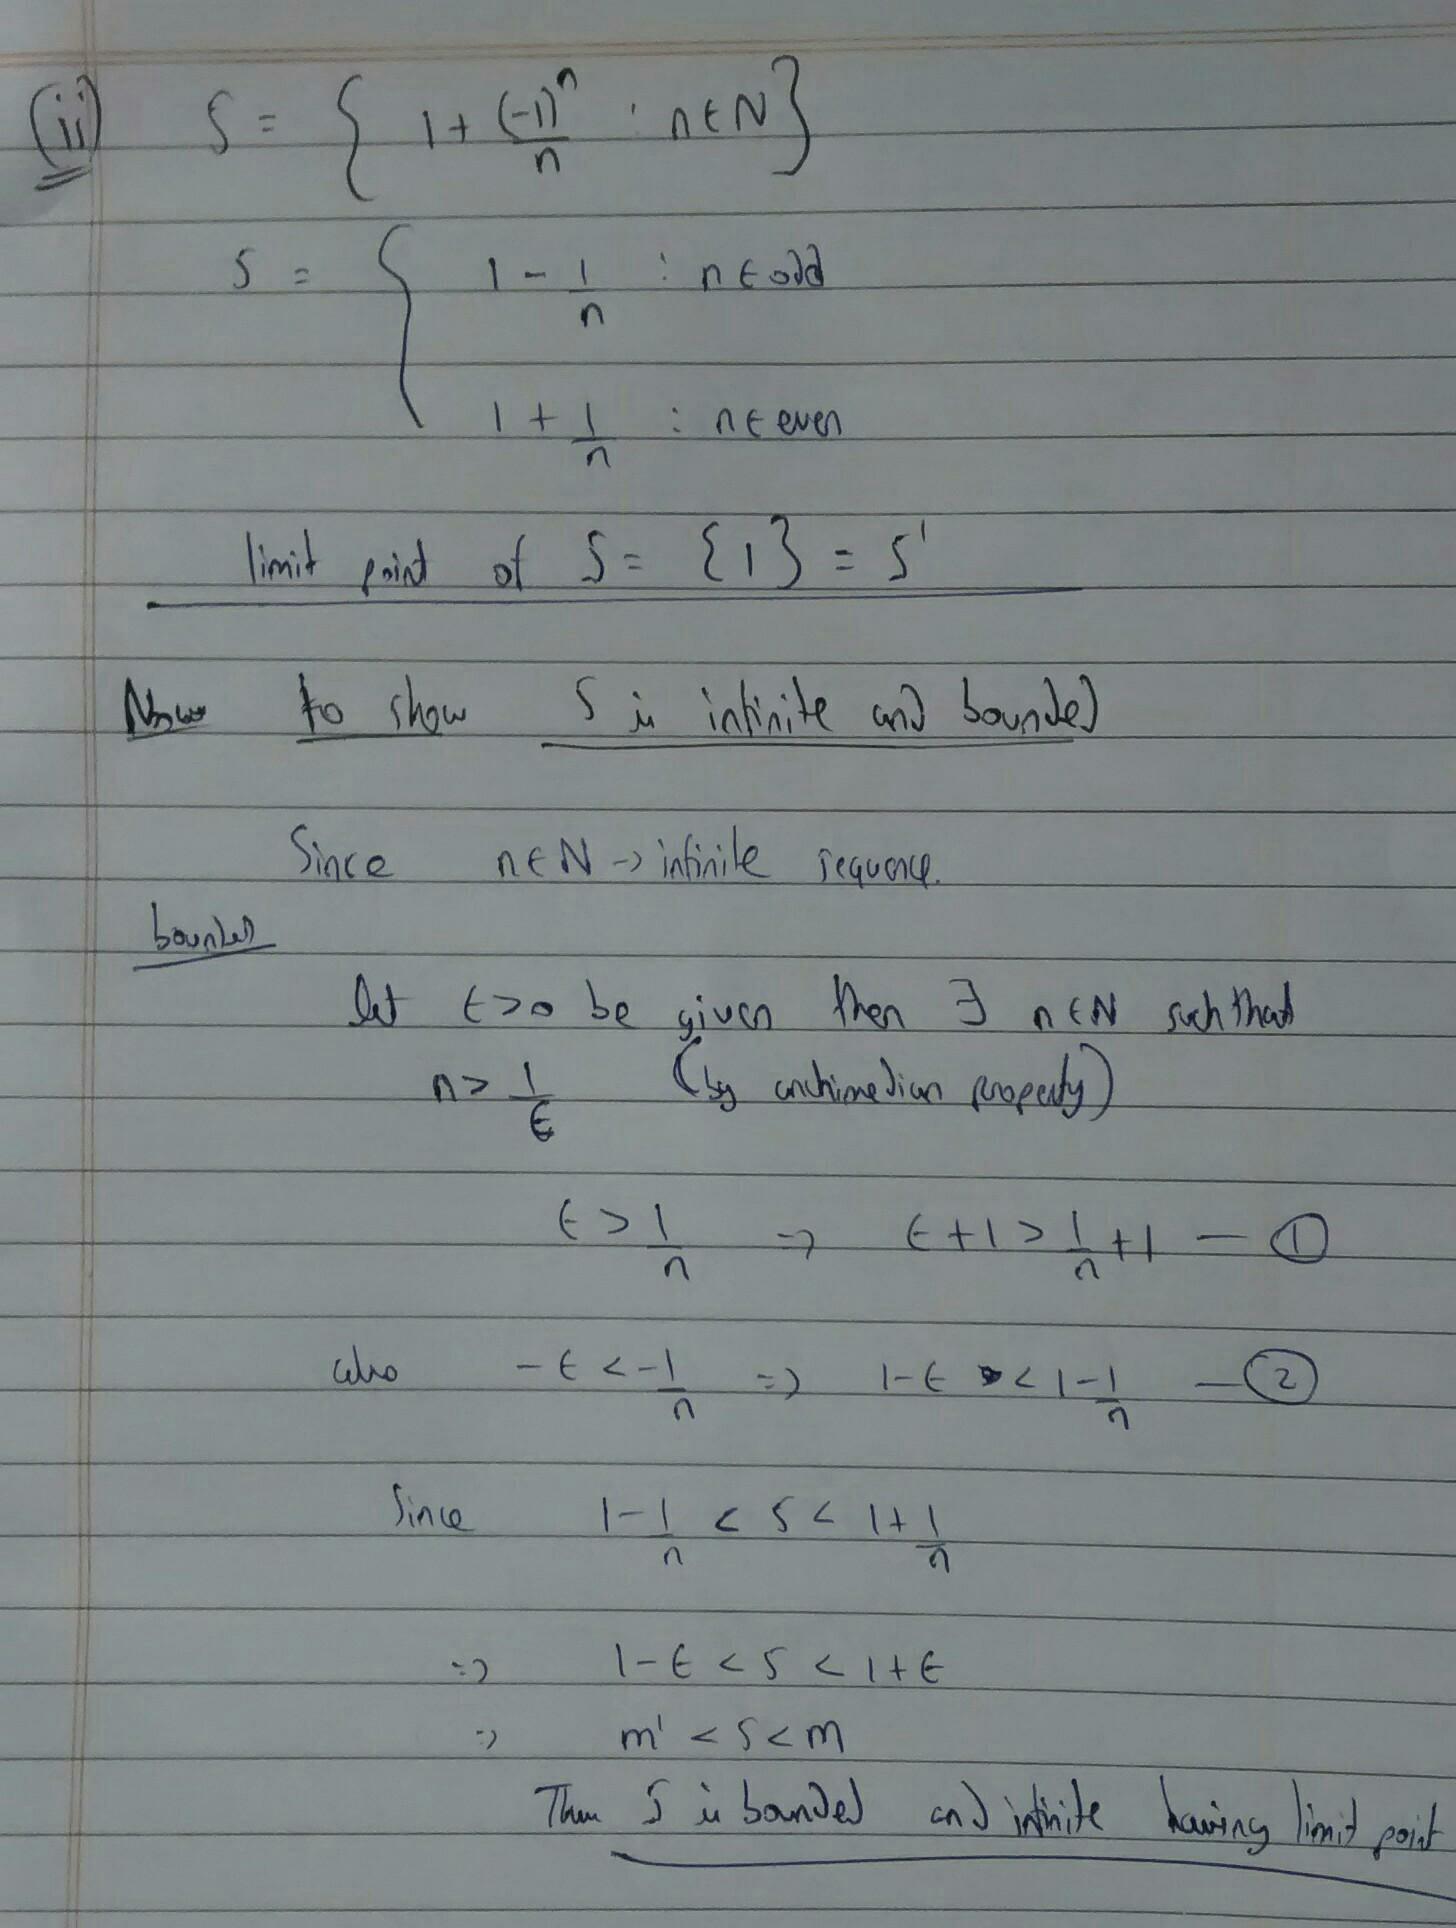 (ii) S = { 1 + (-1)^n / n : n ∈ N }
S = { 1 - 1/n : n ∈ odd
1 + 1/n : n ∈ even
limit point of S = {1} = S'
Now to show S is infinite and bounded
Since n ∈ N → infinite sequence.
bounded
let ϵ > 0 be given then ∃ n ∈ N such that
n > 1/ϵ (by archimedian property)
ϵ > 1/n ⇒ ϵ + 1 > 1/n + 1 — ①
also -ϵ < -1/n ⇒ 1 - ϵ < 1 - 1/n — ②
Since 1 - 1/n < S < 1 + 1/n
⇒ 1 - ϵ < S < 1 + ϵ
⇒ m' < S < m
Thus S is bounded and infinite having limit point